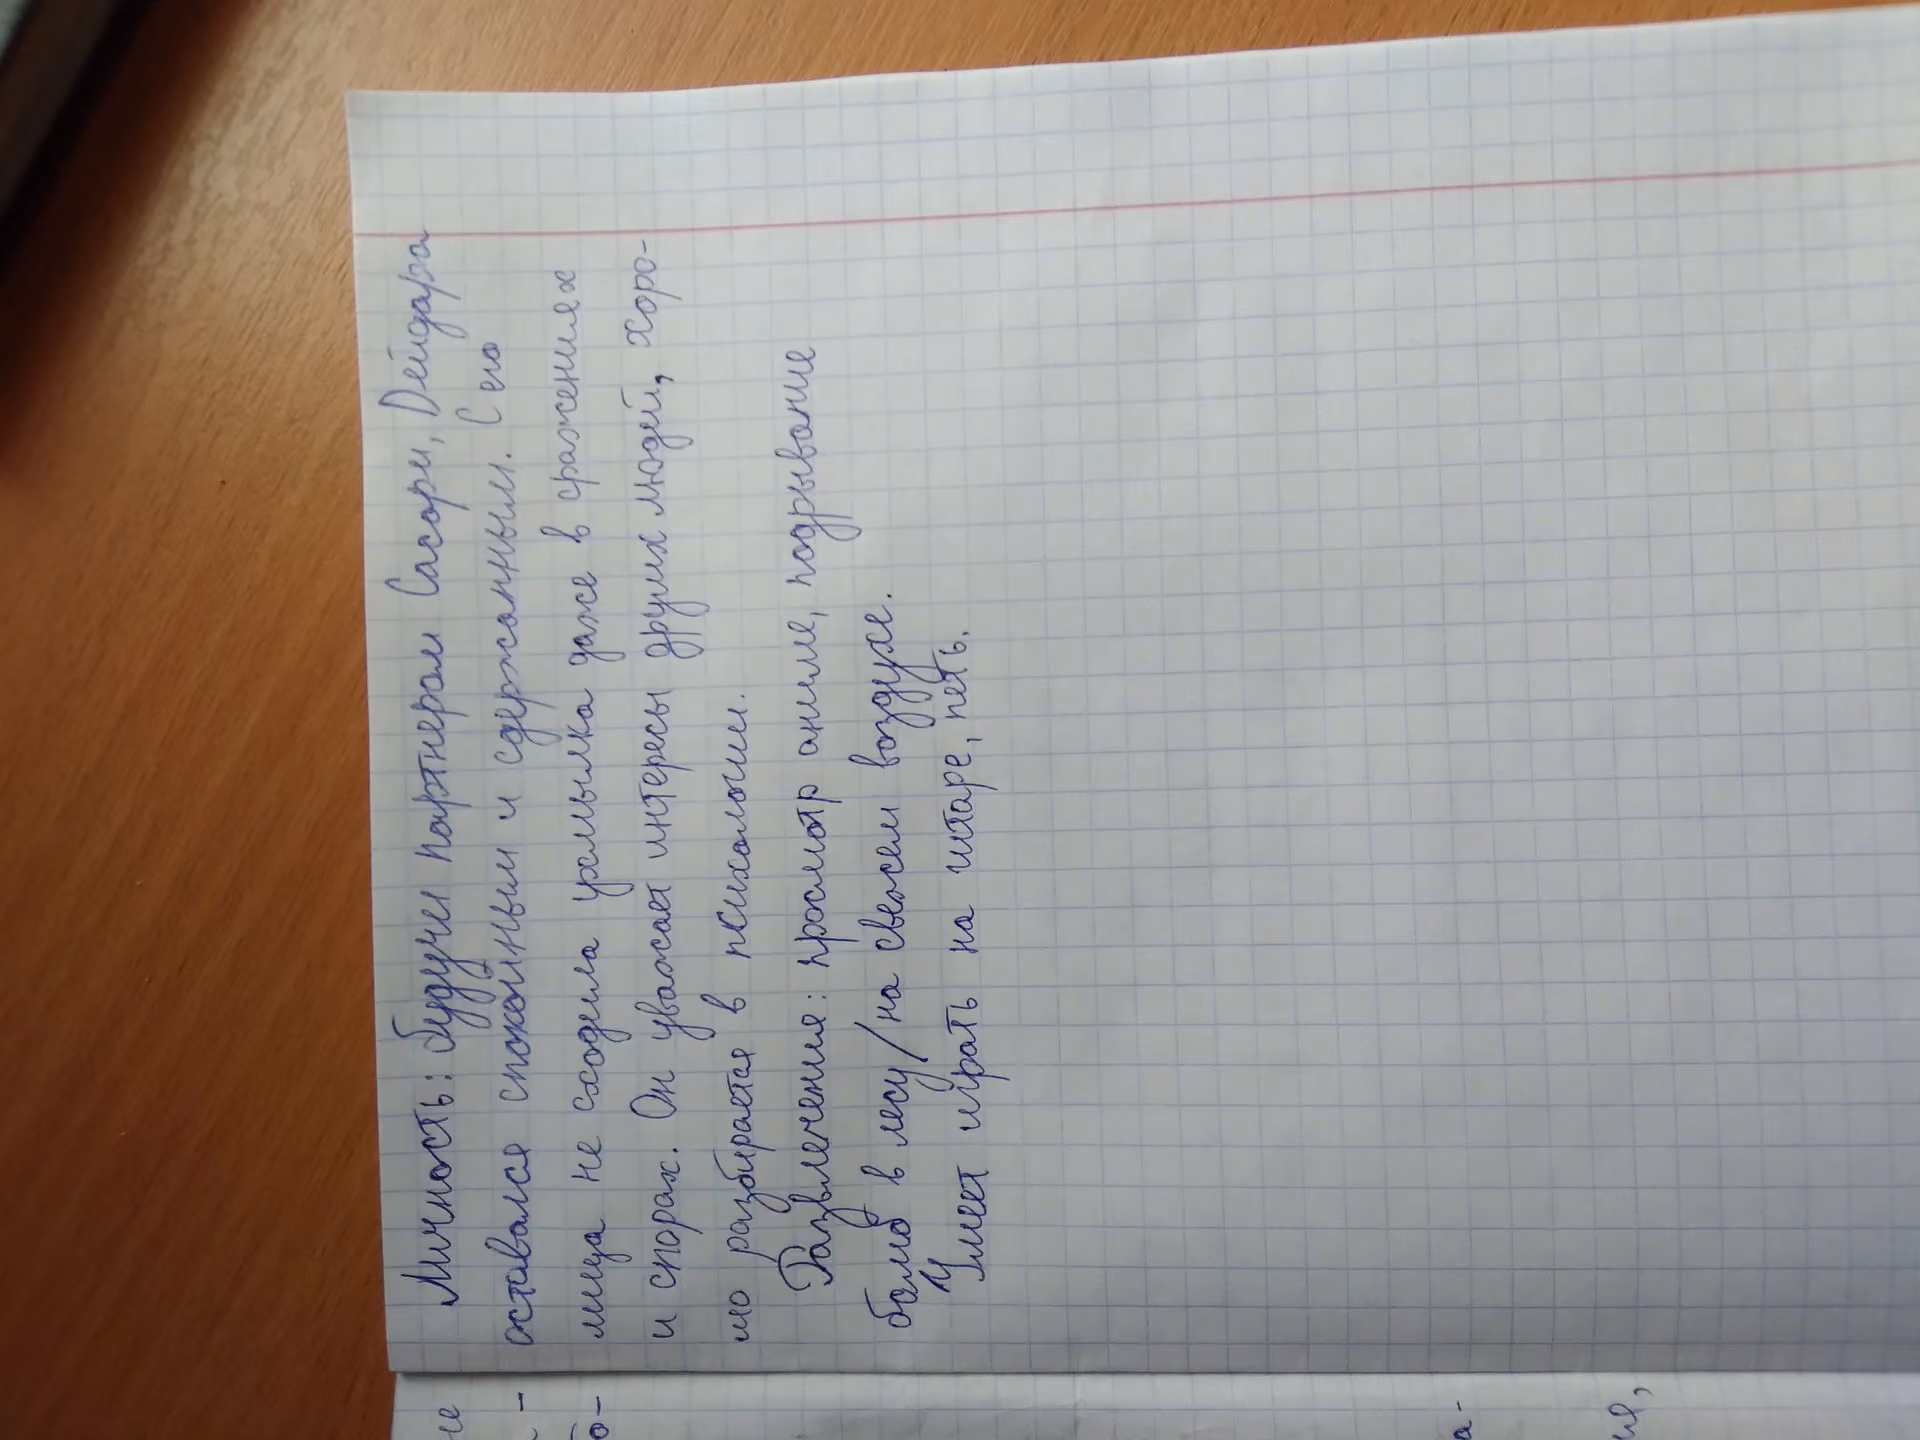 Личность: будучи партнером Сасори, Дейдара
оставался спокойным и сдержанным. С его
лица не сходила ухмылка даже в сражениях
и спорах. Он уважает интересы других людей, хоро-
шо разбирается в психологии.
Развлечения: просмотр аниме, подрывание
бомб в лесу/на свежем воздухе.
Умеет играть на гитаре, петь.